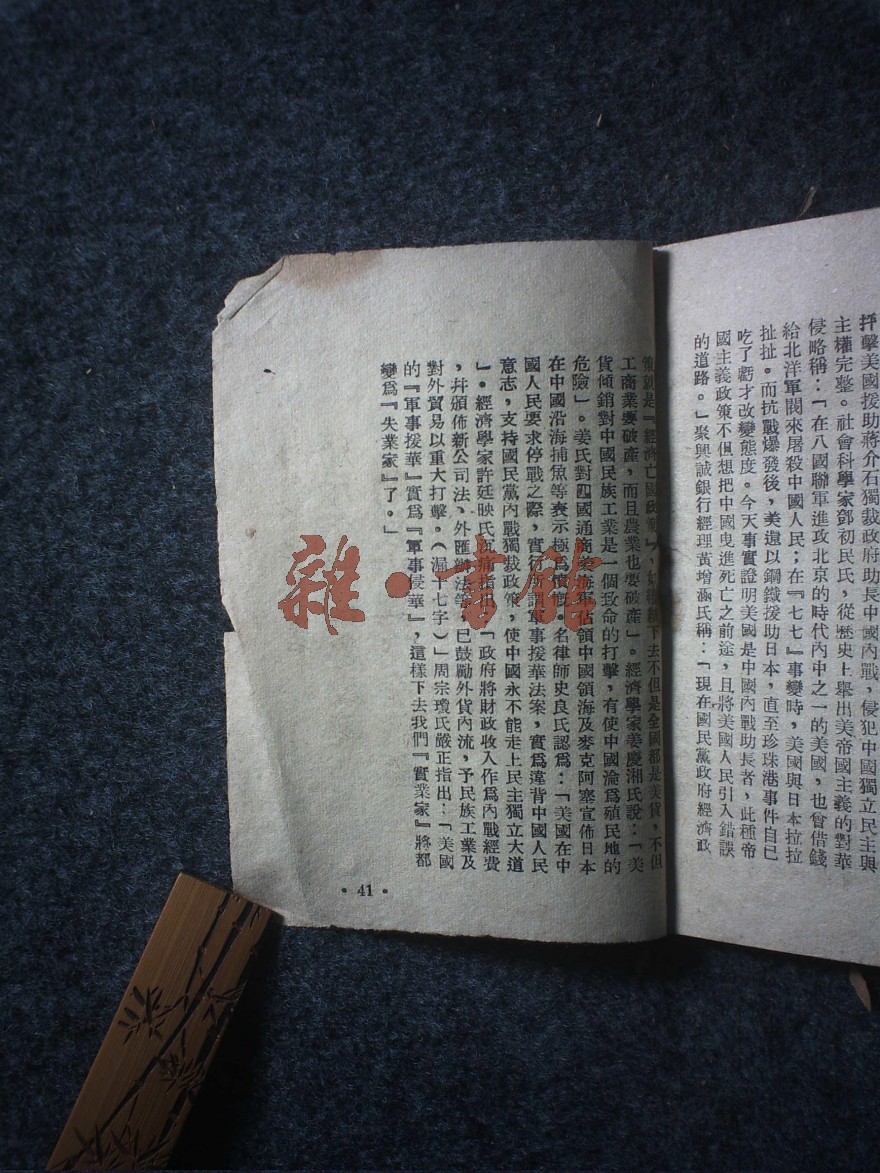 抨擊美國援助蔣介石獨裁政府進行中國內戰,侵犯中國獨立民主與
主權完整。社會科學家鄧初民氏,從歷史上舉出美帝國主義的對華
侵略稱:「在八國聯軍進攻北京的時代內中之一的美國,也曾借錢
給北洋軍閥來屠殺中國人民;在『七七』事變時,美國與日本拉拉
扯扯。而抗戰爆發後,美還以鋼鐵援助日本,直至珍珠港事件自己
吃了虧才改變態度。今天事實證明美國是中國內戰助長者,此種帝
國主義政策不但想把中國曳進死亡之前途,且將美國人民引入錯誤
的道路。」聚興誠銀行經理黃增涵氏稱:「現在國民黨政府經濟政
策就是『經濟亡國政策』,如繼續下去不但是全國都是美貨,不但
工商業要破產,而且農業也要破產」。經濟學家姜慶湘氏說:「美
貨傾銷對中國民族工業是一個致命的打擊,有使中國淪為殖民地的
危險」。姜氏對四國通商 海軍佔領中國領海及麥克阿塞宣佈日本
在中國沿海捕魚等表示極為憤慨。名律師史良氏認為:「美國在中
國人民要求停戰之際,實行所謂軍事援華法案,實為違背中國人民
意志,支持國民黨內戰獨裁政策,使中國永不能走上民主獨立大道
」。經濟學家許廷映氏沉痛指出:「政府將財政收入作為內戰經費
,并頒佈新公司法、外匯辦法等,已鼓勵外貨內流,予民族工業及
對外貿易以重大打擊。(漏十七字)」周宗瓊氏嚴正指出:「美國
的『軍事援華』實為『軍事侵華』,這樣下去我們『實業家』將都
變為『失業家』了。」
• 41 •
雜·書館